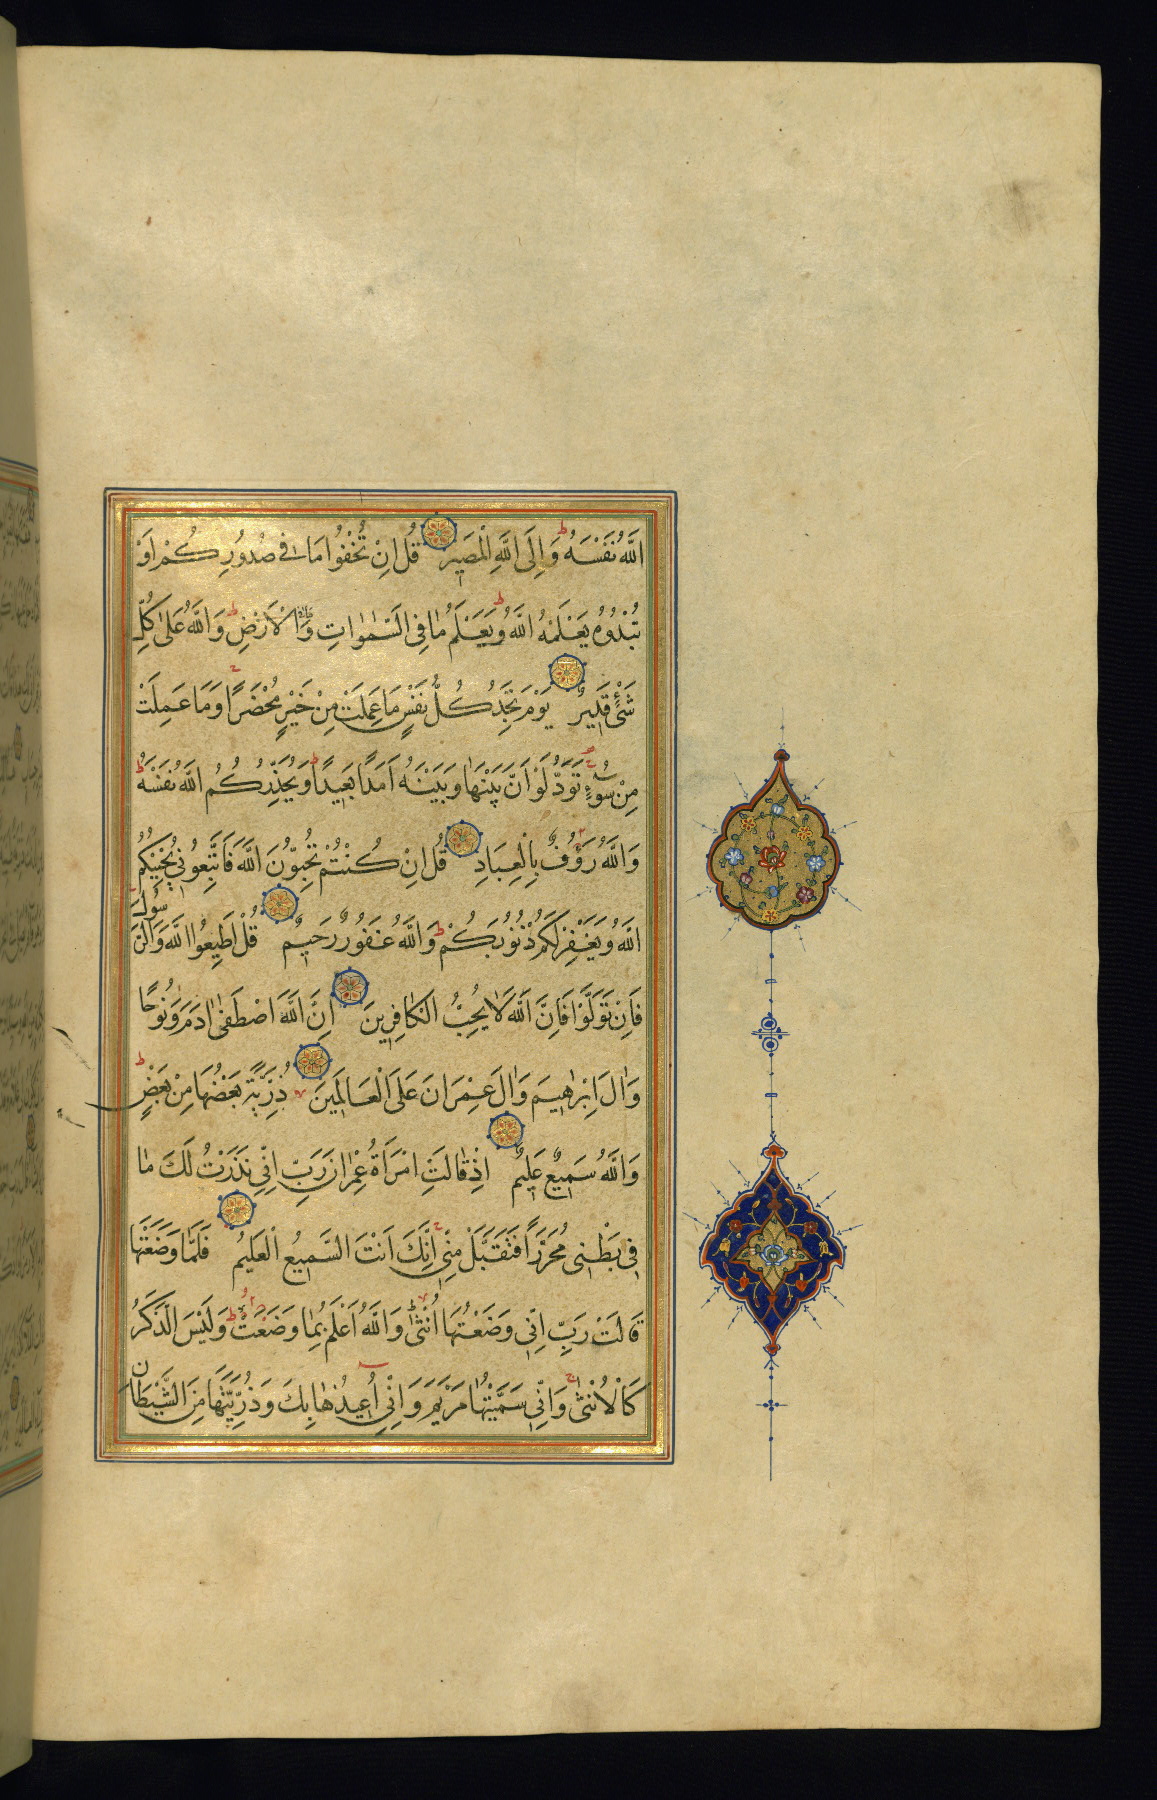 اللَّهُ نَفْسَهُ وَاِلَى اللَّهِ الْمَصِيرُ قُلْ اِنْ تُخْفُوا مَا فِى صُدُورِكُمْ اَوْ
تُبْدُوهُ يَعْلَمْهُ اللَّهُ وَيَعْلَمُ مَا فِى السَّمٰوَاتِ وَمَا فِى الْاَرْضِ وَاللَّهُ عَلٰى كُلِّ
شَىْءٍ قَدِيرٌ يَوْمَ تَجِدُ كُلُّ نَفْسٍ مَا عَمِلَتْ مِنْ خَيْرٍ مُحْضَرًا وَمَا عَمِلَتْ
مِنْ سُوءٍ تَوَدُّ لَوْ اَنَّ بَيْنَهَا وَبَيْنَهُ اَمَدًا بَعِيدًا وَيُحَذِّرُكُمُ اللَّهُ نَفْسَهُ
وَاللَّهُ رَؤُفٌ بِالْعِبَادِ قُلْ اِنْ كُنْتُمْ تُحِبُّونَ اللَّهَ فَاتَّبِعُونِى يُحْبِبْكُمُ
اللَّهُ وَيَغْفِرْ لَكُمْ ذُنُوبَكُمْ وَاللَّهُ غَفُورٌ رَحِيمٌ قُلْ اَطِيعُوا اللَّهَ وَالرَّسُولَ
فَاِنْ تَوَلَّوْا فَاِنَّ اللَّهَ لَا يُحِبُّ الْكَافِرِينَ اِنَّ اللَّهَ اصْطَفٰى اٰدَمَ وَنُوحًا
وَاٰلَ اِبْرٰهِيمَ وَاٰلَ عِمْرَانَ عَلَى الْعَالَمِينَ ذُرِّيَّةً بَعْضُهَا مِنْ بَعْضٍ
وَاللَّهُ سَمِيعٌ عَلِيمٌ اِذْ قَالَتِ امْرَاَةُ عِمْرَانَ رَبِّ اِنِّى نَذَرْتُ لَكَ مَا
فِى بَطْنِى مُحَرَّرًا فَتَقَبَّلْ مِنِّى اِنَّكَ اَنْتَ السَّمِيعُ الْعَلِيمُ فَلَمَّا وَضَعَتْهَا
قَالَتْ رَبِّ اِنِّى وَضَعْتُهَا اُنْثٰى وَاللَّهُ اَعْلَمُ بِمَا وَضَعَتْ وَلَيْسَ الذَّكَرُ
كَالْاُنْثٰى وَاِنِّى سَمَّيْتُهَا مَرْيَمَ وَاِنِّى اُعِيذُهَا بِكَ وَذُرِّيَّتَهَا مِنَ الشَّيْطَانِ